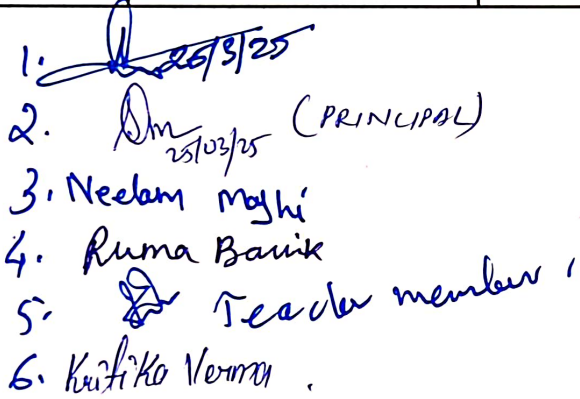 1. 25/3/25
2. 25/03/25 (PRINCIPAL)
3. Neelam Maghi
4. Ruma Barik
5. Teacher member
6. Kritika Verma.